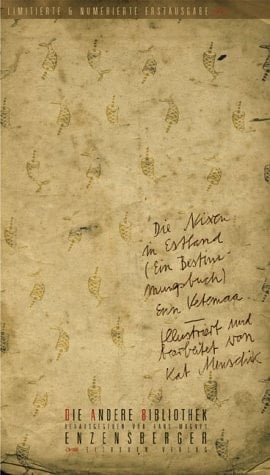 LIMITIERTE & NUMERIERTE ERSTAUSGABE
Die Nixen
in Estland
(Ein Bestim-
mungsbuch)
Enn Vetemaa
Illustriert und
bearbeitet von
Kat Menschik
DIE ANDERE BIBLIOTHEK
HERAUSGEGEBEN VON HANS MAGNUS
ENZENSBERGER
EICHBORN VERLAG